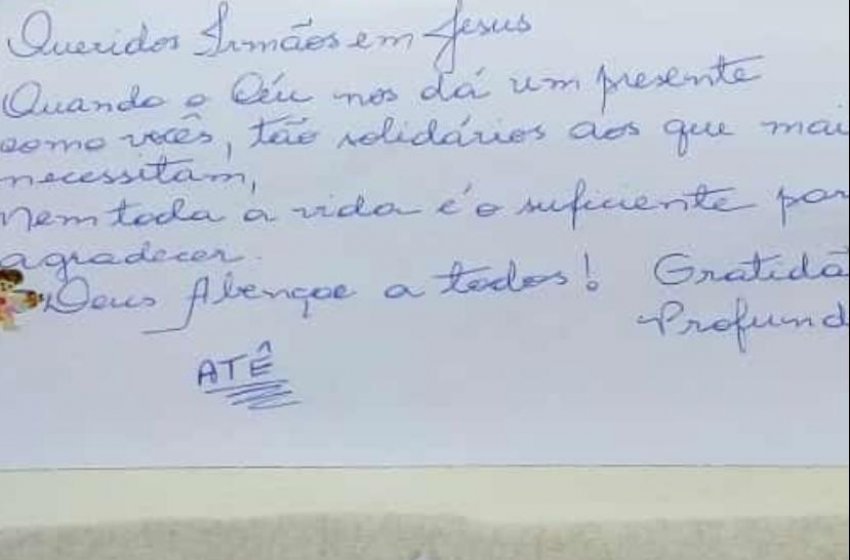 Queridos Irmãos em Jesus
Quando o Céu nos dá um presente
como vocês, tão solidários aos que mai
necessitam,
nem toda a vida é o suficiente par
agradecer.
Deus Abençoe a todos! Gratidã
Profund
ATÊ